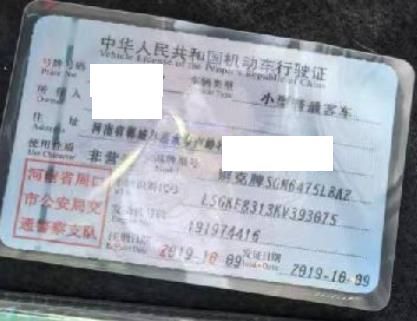 中华人民共和国机动车行驶证
Vehicle License of the People's Republic of China
号牌号码 车辆类型 小型普通客车
Plate No.
所有人
Owner
住址 河南省
Address
使用性质 非营 品牌型号 别克牌SGM6475LBAZ
Use Character
河南省周口 车辆识别代号 LSGKE8313KV393075
市公安局交 发动机号码 191974416
通警察支队 注册日期 2019-10-09 发证日期 2019-10-09